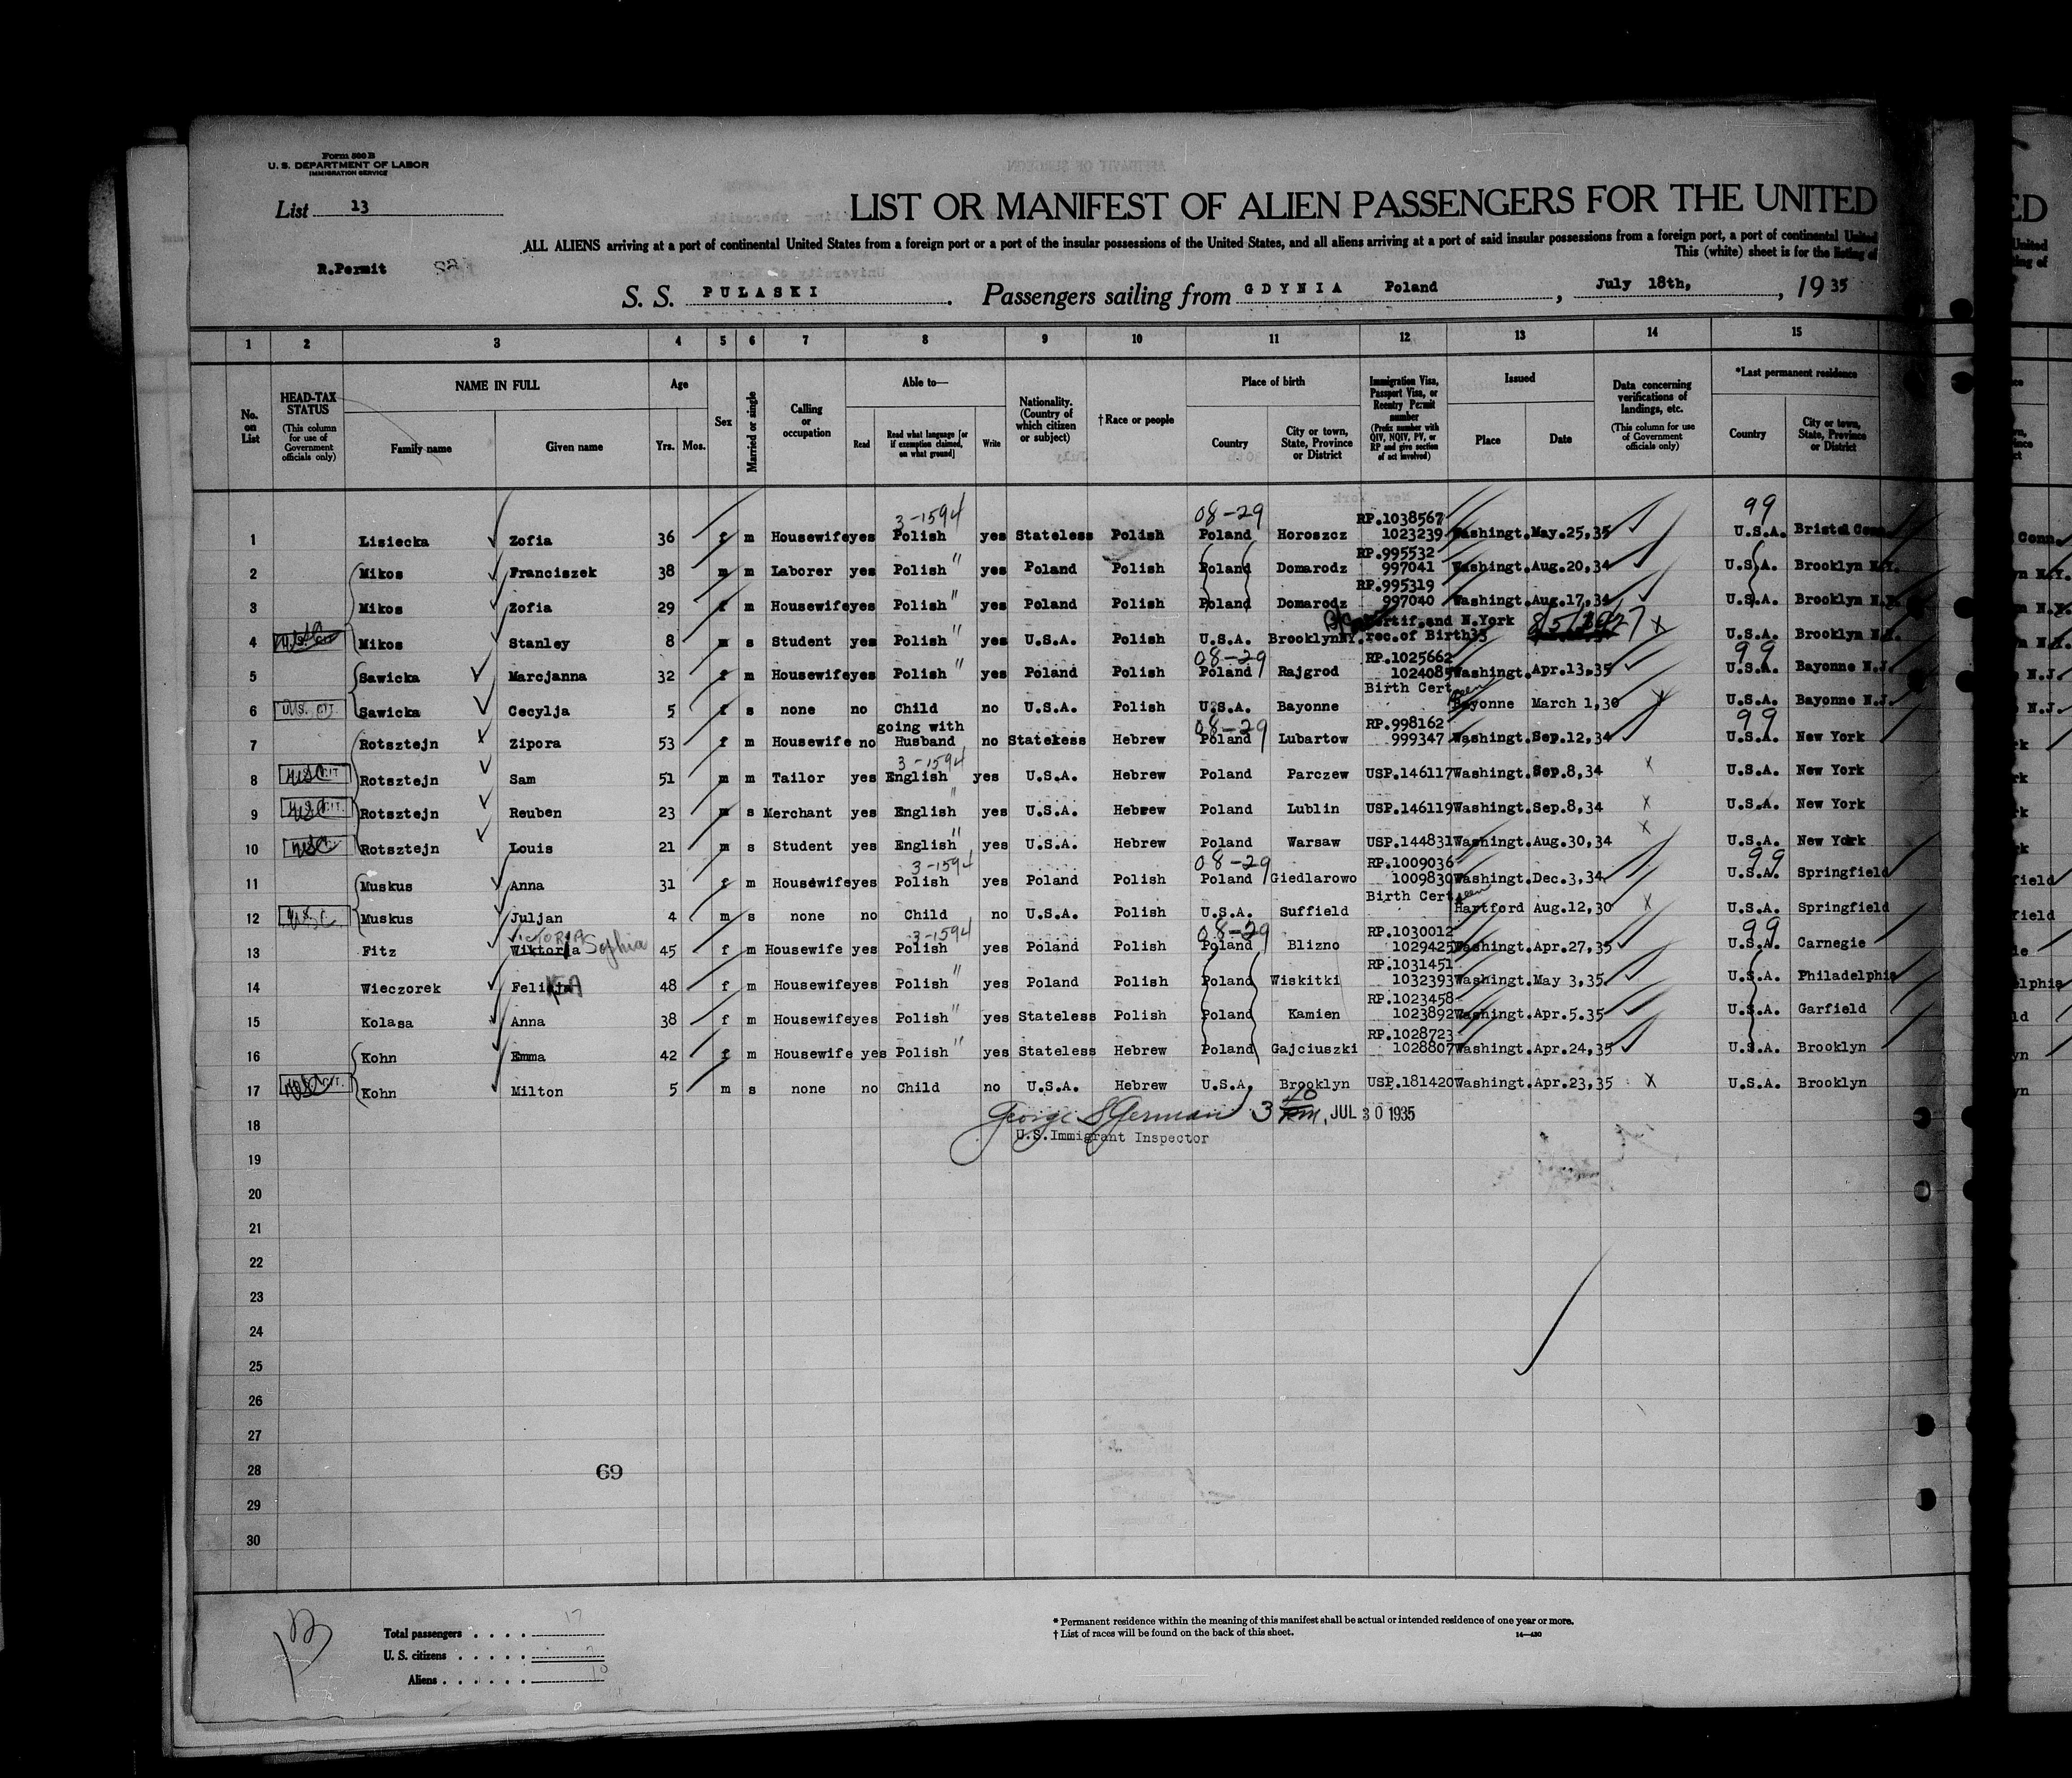 Form 500 B
U. S. DEPARTMENT OF LABOR
IMMIGRATION SERVICE
List 13
LIST OR MANIFEST OF ALIEN PASSENGERS FOR THE UNITED
ALL ALIENS arriving at a port of continental United States from a foreign port or a port of the insular possessions of the United States, and all aliens arriving at a port of said insular possessions from a foreign port, a port of continental United
This (white) sheet is for the listing of
R.Permit
S. S. PULASKI. Passengers sailing from GDYNIA Poland, July 18th, 1935
1 2 3 4 5 6 7 8 9 10 11 12 13 14 15
No. on List
HEAD-TAX STATUS (This column for use of Government officials only)
NAME IN FULL Family name Given name
Age Yrs. Mos.
Sex
Married or single
Calling or occupation
Able to— Read Read what language [or if exemption claimed, on what ground] Write
Nationality. (Country of which citizen or subject)
† Race or people
Place of birth Country City or town, State, Province or District
Immigration Visa, Passport Visa, or Reentry Permit number (Prefix number with QIV, NQIV, PV, or RP and give section of act involved)
Issued Place Date
Data concerning verifications of landings, etc. (This column for use of Government officials only)
*Last permanent residence Country City or town, State, Province or District
3-1594 08-29 RP.1038567 99
1 Lisiecka Zofia 36 f m Housewife yes Polish yes Stateless Polish Poland Horoszcz 1023239 Washingt. May.25,35 U.S.A. Bristol Conn.
RP.995532
2 Mikos Franciszek 38 m m Laborer yes Polish " yes Poland Polish Poland Domarodz 997041 Washingt. Aug.20,34 U.S.A. Brooklyn N.Y.
RP.995319
3 Mikos Zofia 29 f m Housewife yes Polish " yes Poland Polish Poland Domarodz 997040 Washingt. Aug.17,34 U.S.A. Brooklyn N.Y.
and N.York
4 Mikos Stanley 8 m s Student yes Polish " yes U.S.A. Polish U.S.A. Brooklyn NY. rec.of Birth X U.S.A. Brooklyn N.Y.
08-29 RP.1025662 99
5 Sawicka Marcjanna 32 f m Housewife yes Polish " yes Poland Polish Poland Rajgrod 1024085 Washingt. Apr.13,35 U.S.A. Bayonne N.J.
Birth Cert. seen
6 U.S. CIT. Sawicka Cecylja 5 f s none no Child no U.S.A. Polish U.S.A. Bayonne Bayonne March 1,30 X U.S.A. Bayonne N.J.
going with 08-29 RP.998162 99
7 Rotsztejn Zipora 53 f m Housewife no Husband no Stateless Hebrew Poland Lubartow 999347 Washingt. Sep.12,34 U.S.A. New York
3-1594
8 USC Rotsztejn Sam 51 m m Tailor yes English yes U.S.A. Hebrew Poland Parczew USP.146117 Washingt. Sep.8,34 X U.S.A. New York
9 USC Rotsztejn Reuben 23 m s Merchant yes English " yes U.S.A. Hebrew Poland Lublin USP.146119 Washingt. Sep.8,34 X U.S.A. New York
10 USC Rotsztejn Louis 21 m s Student yes English " yes U.S.A. Hebrew Poland Warsaw USP.144831 Washingt. Aug.30,34 X U.S.A. New York
3-1594 08-29 RP.1009036 99
11 Muskus Anna 31 f m Housewife yes Polish yes Poland Polish Poland Giedlarowo 1009830 Washingt. Dec.3,34 U.S.A. Springfield
Birth Cert. seen
12 U.S.C. Muskus Juljan 4 m s none no Child no U.S.A. Polish U.S.A. Suffield Hartford Aug.12,30 X U.S.A. Springfield
VICTORIA 3-1594 08-29 RP.1030012 99
13 Fitz Wiktoria Sophia 45 f m Housewife yes Polish yes Poland Polish Poland Blizno 1029425 Washingt. Apr.27,35 U.S.A. Carnegie
RP.1031451
14 Wieczorek 48 f m Housewife yes Polish " yes Poland Polish Poland Wiskitki 1032393 Washingt. May 3,35 U.S.A. Philadelphia
RP.1023458
15 Kolasa Anna 38 f m Housewife yes Polish " yes Stateless Polish Poland Kamien 1023892 Washingt. Apr.5.35 U.S.A. Garfield
RP.1028723
16 Kohn Emma 42 f m Housewife yes Polish " yes Stateless Hebrew Poland Gajciuszki 1028807 Washingt. Apr.24,35 U.S.A. Brooklyn
17 Kohn Milton 5 m s none no Child no U.S.A. Hebrew U.S.A. Brooklyn USP.181420 Washingt. Apr.23,35 X U.S.A. Brooklyn
JUL 30 1935
18 U.S.Immigrant Inspector
19
20
21
22
23
24
25
26
27
28 69
29
30
13
Total passengers 17
U. S. citizens 7
Aliens 10
* Permanent residence within the meaning of this manifest shall be actual or intended residence of one year or more.
† List of races will be found on the back of this sheet.
14—430